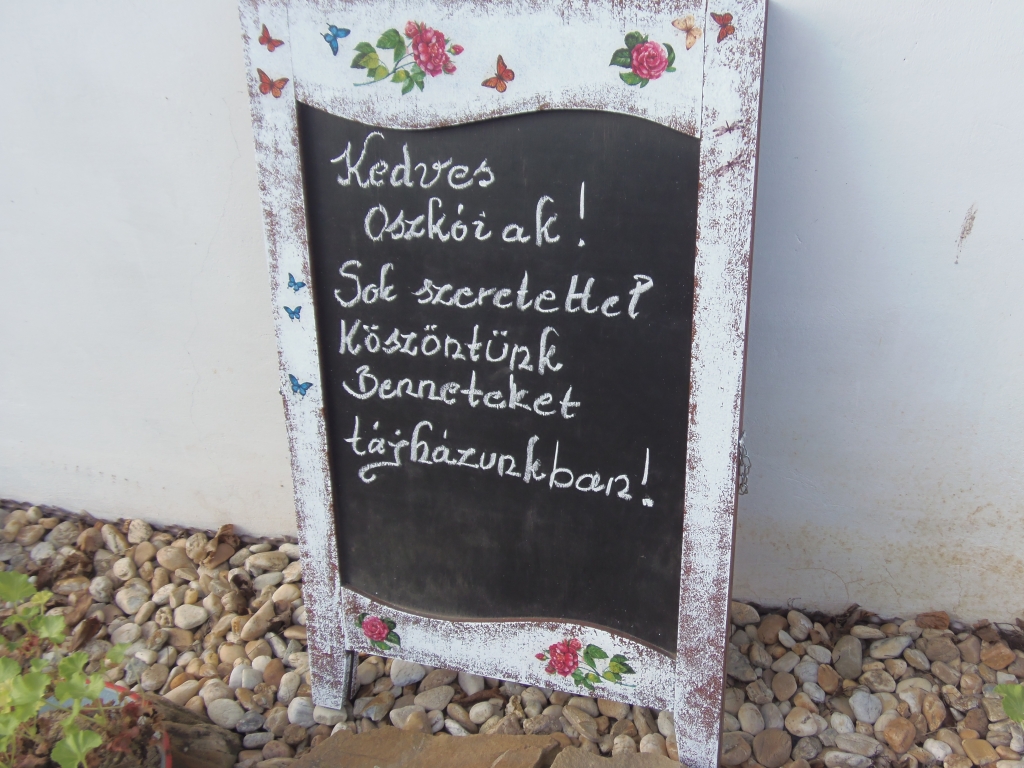 Kedves
Oszkóiak!
Sok szeretettel
Köszöntünk
Benneteket
tájházunkban!